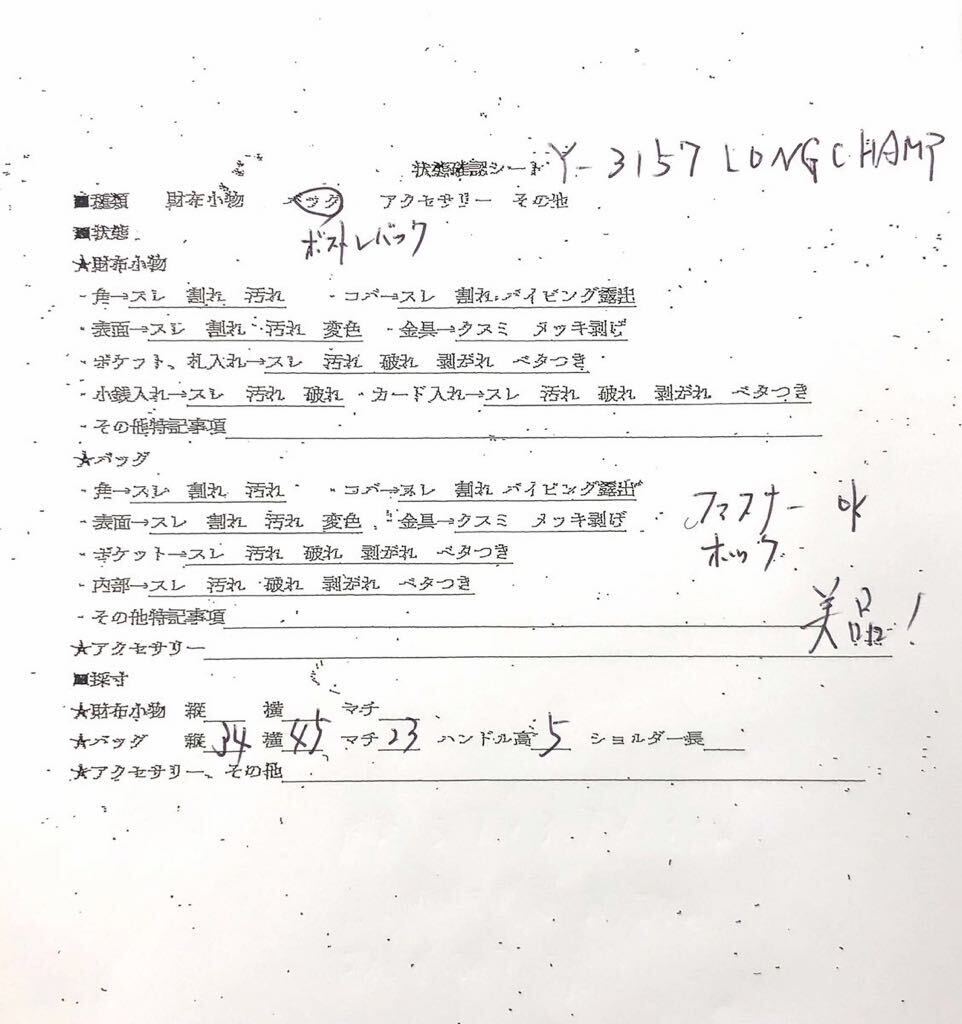 状態確認シート Y-3157 LONGCHAMP
■種類 財布小物 バッグ アクセサリー その他
■状態 ボストンバック
★財布小物
・角→スレ 割れ 汚れ ・コバ→スレ 割れ パイピング露出
・表面→スレ 割れ 汚れ 変色 ・金具→クスミ メッキ剥げ
・ポケット、札入れ→スレ 汚れ 破れ 剥がれ ベタつき
・小銭入れ→スレ 汚れ 破れ ・カード入れ→スレ 汚れ 破れ 剥がれ ベタつき
・その他特記事項
★バッグ
・角→スレ 割れ 汚れ ・コバ→スレ 割れ パイピング露出
・表面→スレ 割れ 汚れ 変色 ・金具→クスミ メッキ剥げ
ファスナー ok
・ポケット→スレ 汚れ 破れ 剥がれ ベタつき
ホック
・内部→スレ 汚れ 破れ 剥がれ ベタつき
・その他特記事項
美品!
★アクセサリー
■採寸
★財布小物 縦 横 マチ
★バッグ 縦34 横45 マチ23 ハンドル高5 ショルダー長
★アクセサリー、その他